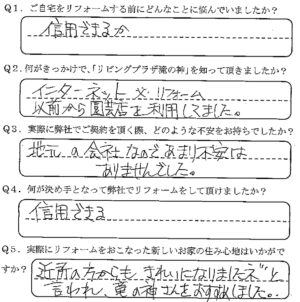 Q1. ご自宅をリフォームする前にどんなことに悩んでいましたか?
信用できるか
Q2. 何がきっかけで、「リビングプラザ滝の神」を知って頂きましたか?
インターネット × リフォーム
以前から園芸店を利用してました。
Q3. 実際に弊社でご契約を頂く際、どのような不安をお持ちでしたか?
地元の会社なのであまり不安は
ありませんでした。
Q4. 何が決め手となって弊社でリフォームをして頂けましたか?
信用できる
Q5. 実際にリフォームをおこなった新しいお家の住み心地はいかがで
すか?
近所の方からも、きれいになりましたネ"と
言われ、竜の神さんをおすすめしました。